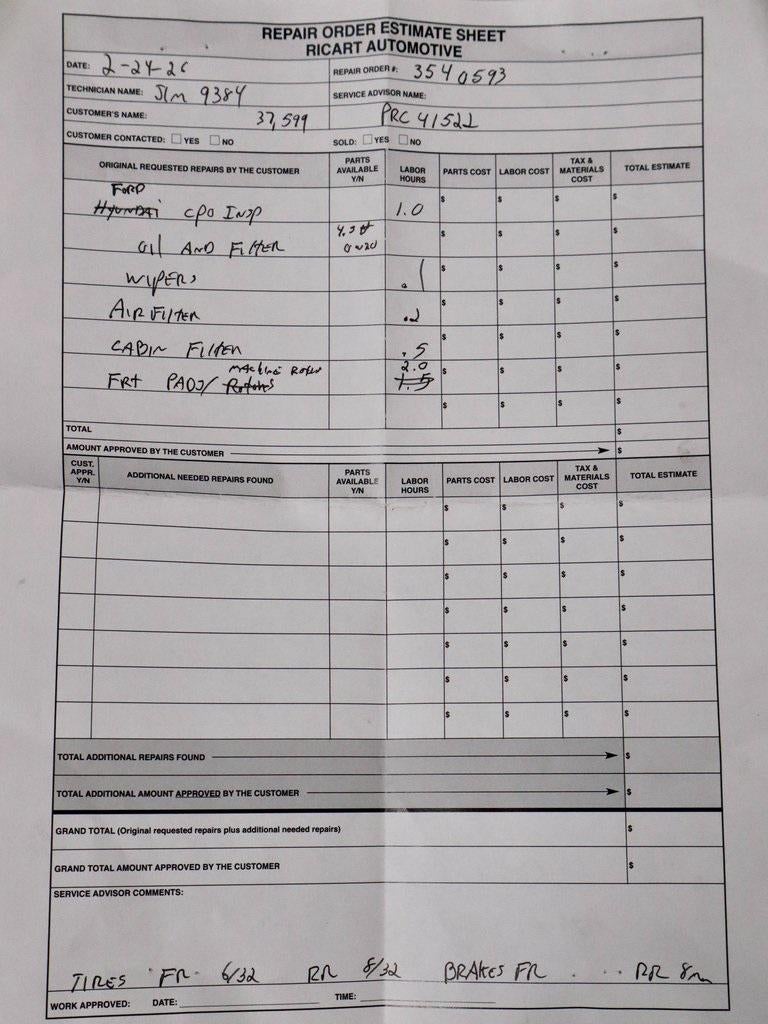 REPAIR ORDER ESTIMATE SHEET
RICART AUTOMOTIVE
DATE: 2-24-26 REPAIR ORDER #: 3540593
TECHNICIAN NAME: JIM 9384 SERVICE ADVISOR NAME:
CUSTOMER'S NAME: 37,599 PRC 41522
CUSTOMER CONTACTED: YES NO SOLD: YES NO
ORIGINAL REQUESTED REPAIRS BY THE CUSTOMER PARTS AVAILABLE Y/N LABOR HOURS PARTS COST LABOR COST TAX & MATERIALS COST TOTAL ESTIMATE
FORD
HYUNDAI CPO INSP 1.0 $ $ $ $
OIL AND FILTER 0W20 $ $ $ $
WIPERS .1 $ $ $ $
AIR FILTER .2 $ $ $ $
CABIN FILTER .5 $ $ $ $
MACHINE ROTOR 2.0
FRT PADS/ Rotors 1.5 $ $ $ $
$ $ $ $
TOTAL $
AMOUNT APPROVED BY THE CUSTOMER $
CUST. APPR. Y/N ADDITIONAL NEEDED REPAIRS FOUND PARTS AVAILABLE Y/N LABOR HOURS PARTS COST LABOR COST TAX & MATERIALS COST TOTAL ESTIMATE
$ $ $ $
$ $ $ $
$ $ $ $
$ $ $ $
$ $ $ $
$ $ $ $
$ $ $ $
TOTAL ADDITIONAL REPAIRS FOUND $
TOTAL ADDITIONAL AMOUNT APPROVED BY THE CUSTOMER $
GRAND TOTAL (Original requested repairs plus additional needed repairs) $
GRAND TOTAL AMOUNT APPROVED BY THE CUSTOMER $
SERVICE ADVISOR COMMENTS:
TIRES FR 6/32 RR 8/32 BRAKES FR RR 8m
WORK APPROVED: DATE: TIME: